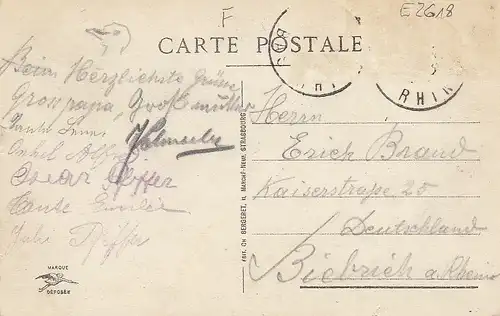 F
E2618
CARTE POSTALE
RHIN
Beim Herzlichste Grüsse
Grosspapa, Großmutter
Tante
Onkel Alfred
Oscar Pfiffer
Tante Emilie
Pfiffer
Herrn
Erich Brand
Kaiserstraße 25
Deutschland
Biebrich a. Rhein
EDIT. CH BERGERET, 11, MARCHÉ-NEUF, STRASBOURG
MARQUE
DÉPOSÉE